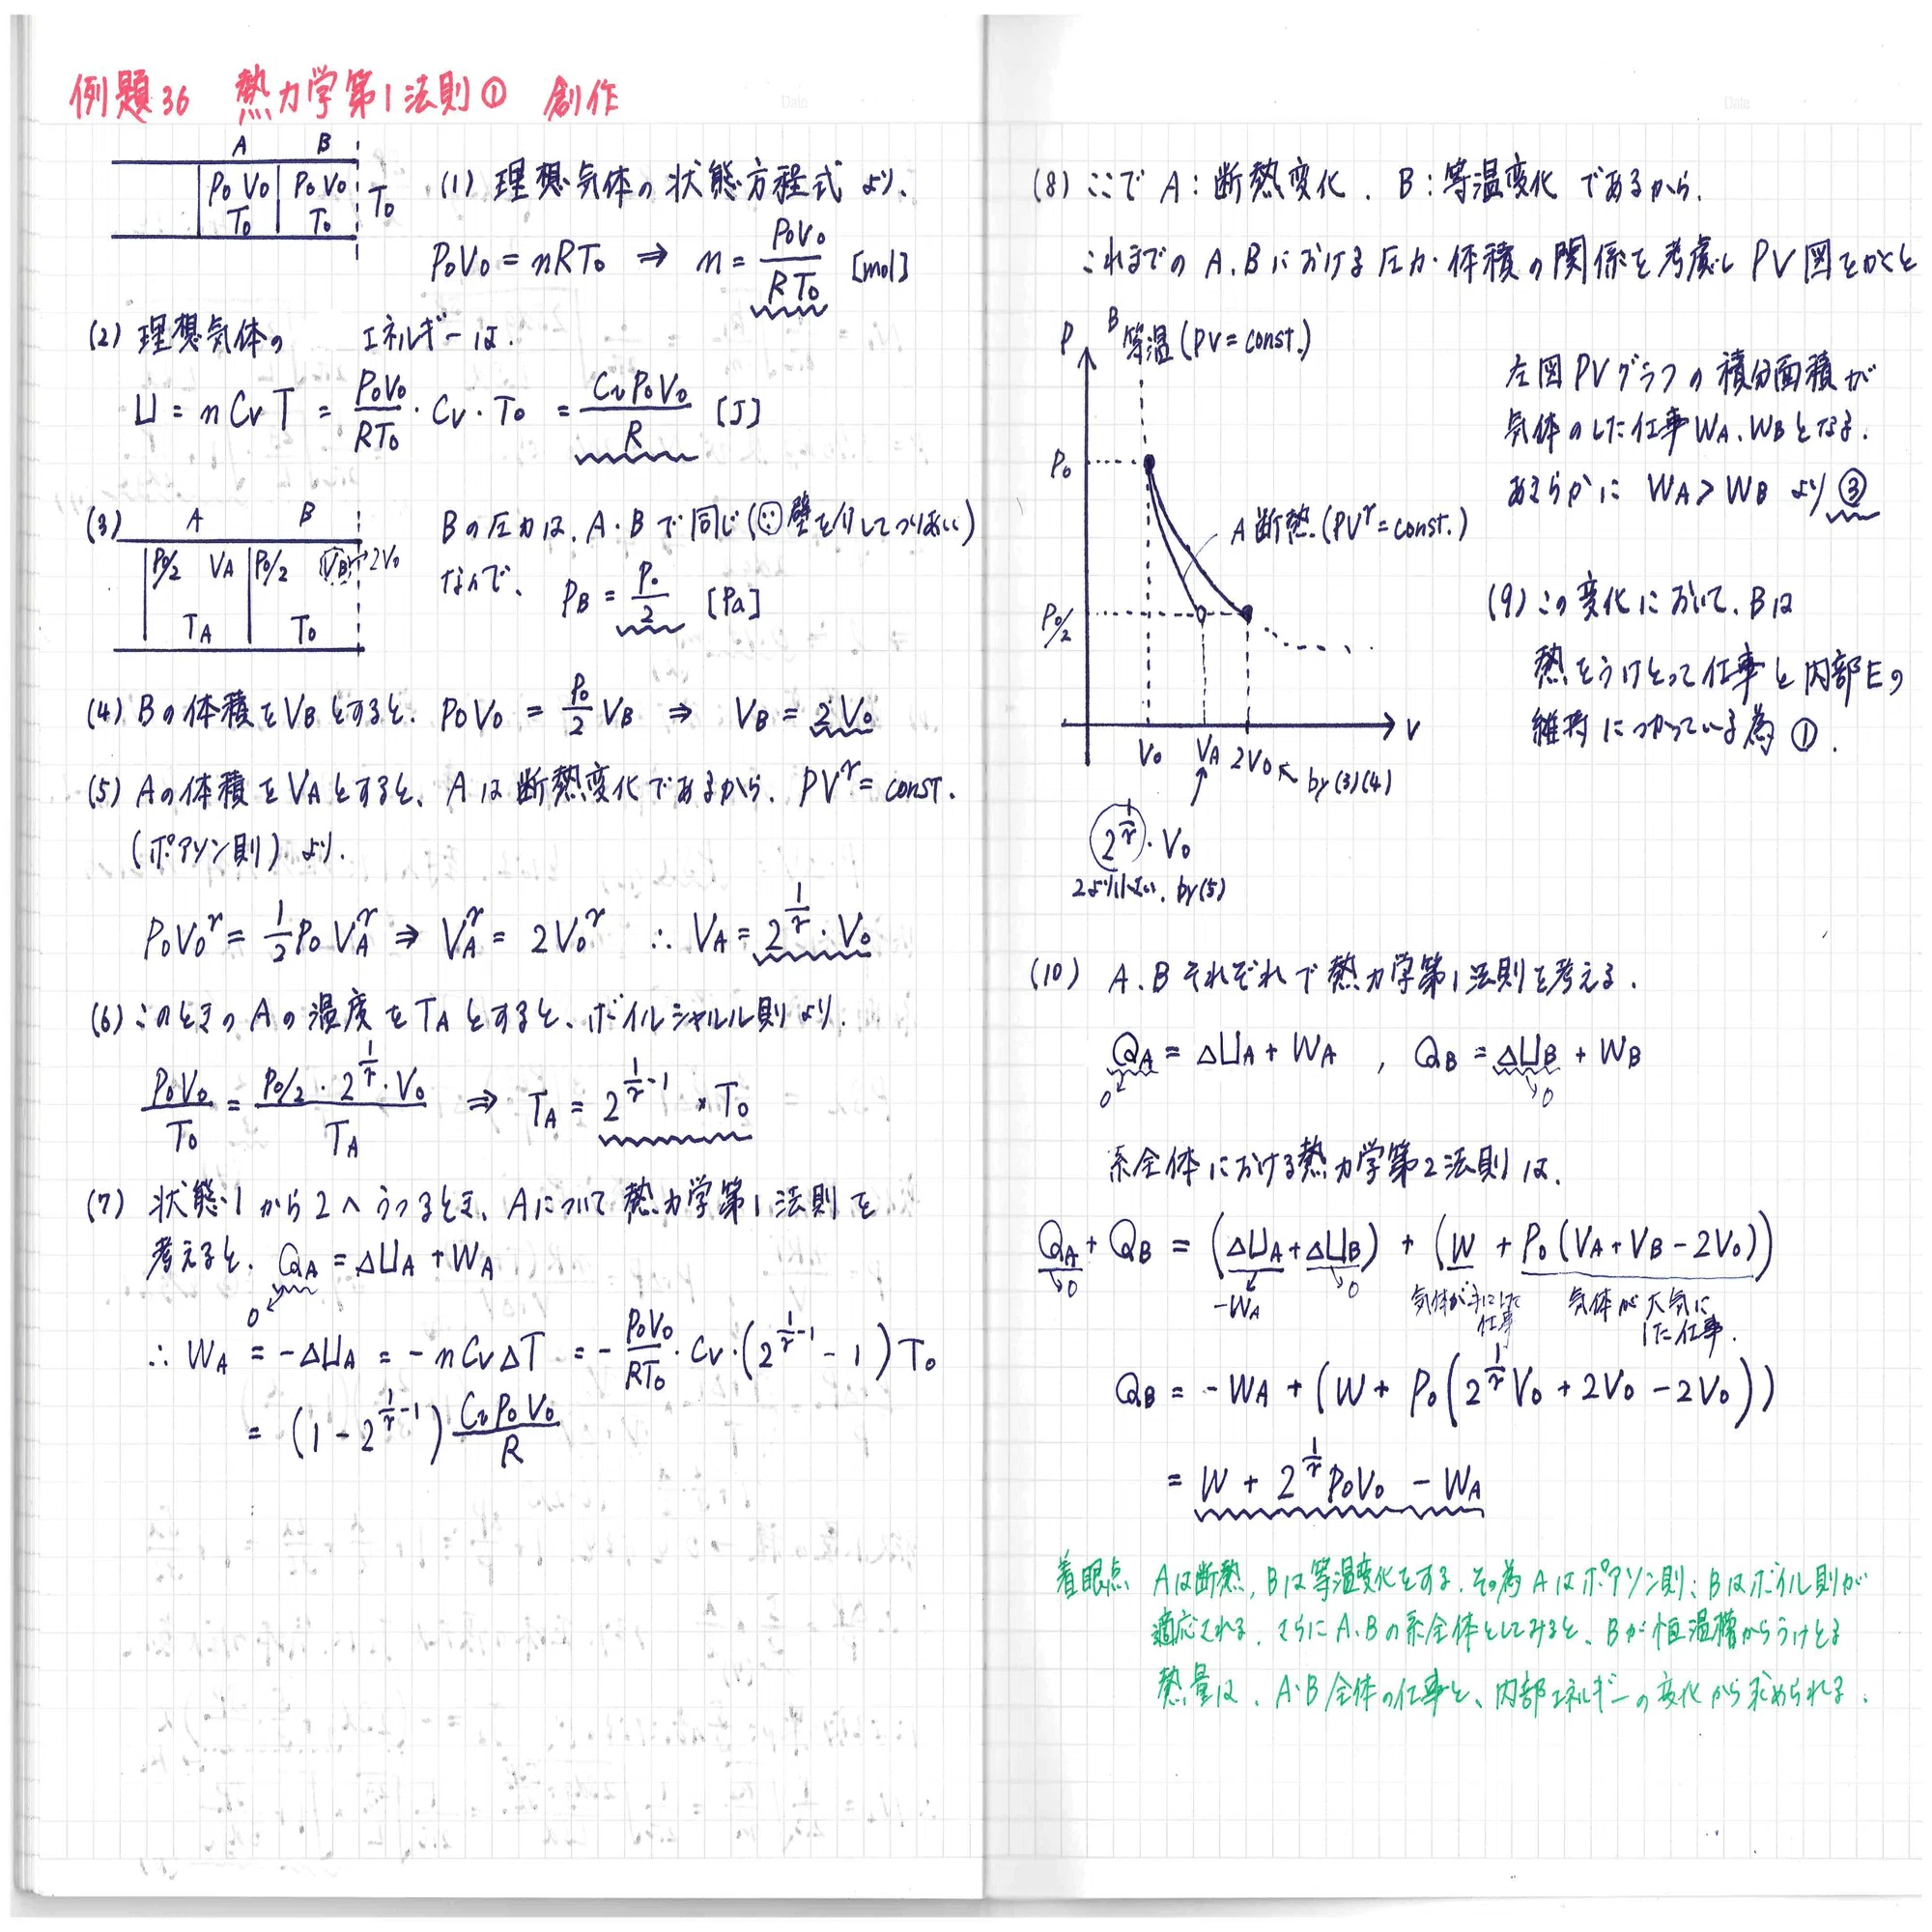 例題36 熱力学第1法則① 創作
A B
P₀ V₀ P₀ V₀ T₀
T₀ T₀
(1) 理想気体の状態方程式より、
P₀V₀ = nRT₀ ⇒ n = P₀V₀/RT₀ [mol]
(2) 理想気体の エネルギーは.
U = nCvT = P₀V₀/RT₀ · Cv · T₀ = CvP₀V₀/R [J]
(3) A B
P₀/2 VA P₀/2 VB 2V₀
TA T₀
Bの圧力は、A・Bで同じ(∵壁を介してつりあい)
なので、 PB = P₀/2 [Pa]
(4) Bの体積をVBとすると. P₀V₀ = P₀/2 VB ⇒ VB = 2V₀
(5) Aの体積をVAとすると、Aは断熱変化であるから. PV^γ = const.
(ポアソン則)より.
P₀V₀^γ = 1/2 P₀ VA^γ ⇒ VA^γ = 2V₀^γ ∴ VA = 2^(1/γ) · V₀
(6) このときのAの温度をTAとすると、ボイルシャルル則より.
P₀V₀/T₀ = P₀/2 · 2^(1/γ) · V₀/TA ⇒ TA = 2^(1/γ-1) × T₀
(7) 状態1から2へうつるとき、Aについて熱力学第1法則を
考えると. QA = ΔUA + WA
0
∴ WA = -ΔUA = -nCvΔT = -P₀V₀/RT₀ · Cv · (2^(1/γ-1) - 1)T₀
= (1 - 2^(1/γ-1)) CvP₀V₀/R
(8) ここで A:断熱変化. B:等温変化 であるから.
これまでの A.Bにおける圧力・体積の関係を考慮しPV図をかくと
P B 等温(PV = const.)
P₀
A 断熱.(PV^γ = const.)
P₀/2
V₀ VA 2V₀ by(3)(4) V
2^(1/γ) · V₀
2より小さい. by(5)
左図PVグラフの積分面積が
気体のした仕事WA.WBとなる.
あきらかに WA > WB より ③
(9) この変化において.Bは
熱をうけとって仕事と内部Eの
維持につかっている為 ①.
(10) A.Bそれぞれで熱力学第1法則を考える.
QA = ΔUA + WA , QB = ΔUB + WB
0 0
系全体における熱力学第2法則は.
QA + QB = (ΔUA + ΔUB) + (W + P₀(VA + VB - 2V₀))
0 -WA 0 気体が手にした仕事 気体が大気にした仕事.
QB = -WA + (W + P₀(2^(1/γ)V₀ + 2V₀ - 2V₀))
= W + 2^(1/γ)P₀V₀ - WA
着眼点 Aは断熱,Bは等温変化をする.その為Aはポアソン則、Bはボイル則が
適応される. さらにA.Bの系全体としてみると、Bが恒温槽からうけとる
熱量は、A・B全体の仕事と、内部エネルギーの変化から求められる.